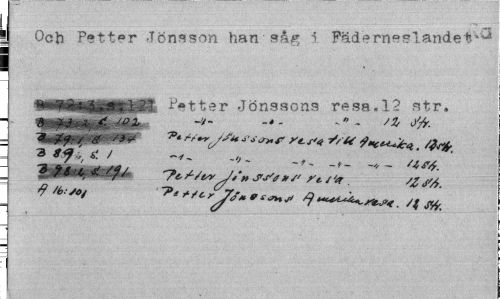 Ra
Och Petter Jönsson han såg i Fäderneslandet
B 72:3,s.121 Petter Jönssons resa.12 str.
B 73:2, s. 102 -"- -"- "- 12 str.
B 79:1, s 134 Petter Jönssons resa till Amerika. 12 str.
B 89:2, s. 1 -"- -"- -"- -"- -"- 12 str.
B 98:2, s 191 Petter Jönssons resa. 12 str.
A 16:101 Petter Jönssons Amerikaresa. 12 str.